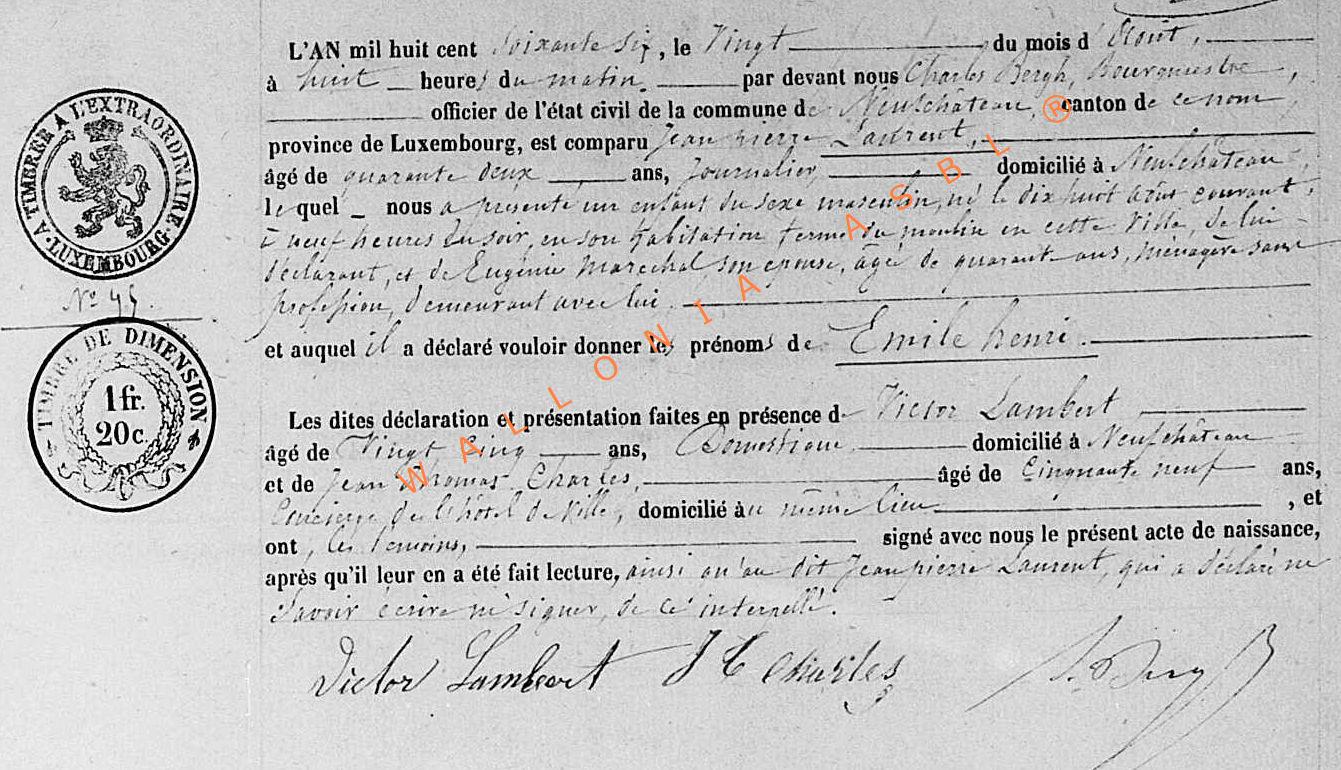 TIMBRÉE A L'EXTRAORDINAIRE
LUXEMBOURG
N° 45.
TIMBRE DE DIMENSION
1 fr.
20 c.
L'AN mil huit cent Soixante Six, le Vingt du mois d'Août,
à huit heures du matin. par devant nous Charles Bergh, Bourgmestre,
officier de l'état civil de la commune de Neufchâteau, canton de ce nom,
province de Luxembourg, est comparu Jean pierre Laurent,
âgé de quarante deux ans, Journalier, domicilié à Neufchâteau,
lequel nous a présenté un enfant du sexe masculin, né le dix huit août courant,
à neuf heures du soir, en son habitation ferme du moulin en cette Ville, de lui
déclarant, et de Eugénie Maréchal son épouse, âgé de quarante ans, ménagère sans
profession, demeurant avec lui.
et auquel il a déclaré vouloir donner les prénoms de Emile henri.
Les dites déclaration et présentation faites en présence de Victor Lambert
âgé de Vingt Cinq ans, Domestique domicilié à Neufchâteau
et de Jean Thomas Charles, âgé de Cinquante neuf ans,
Concierge de l'hôtel de Ville, domicilié au même lieu , et
ont, les témoins, signé avec nous le présent acte de naissance,
après qu'il leur en a été fait lecture, ainsi qu'au dit Jean pierre Laurent, qui a déclaré ne
Savoir écrire ni signer, de ce interpellé.
Victor Lambert J T Charles
WALLONIA ASBL ®